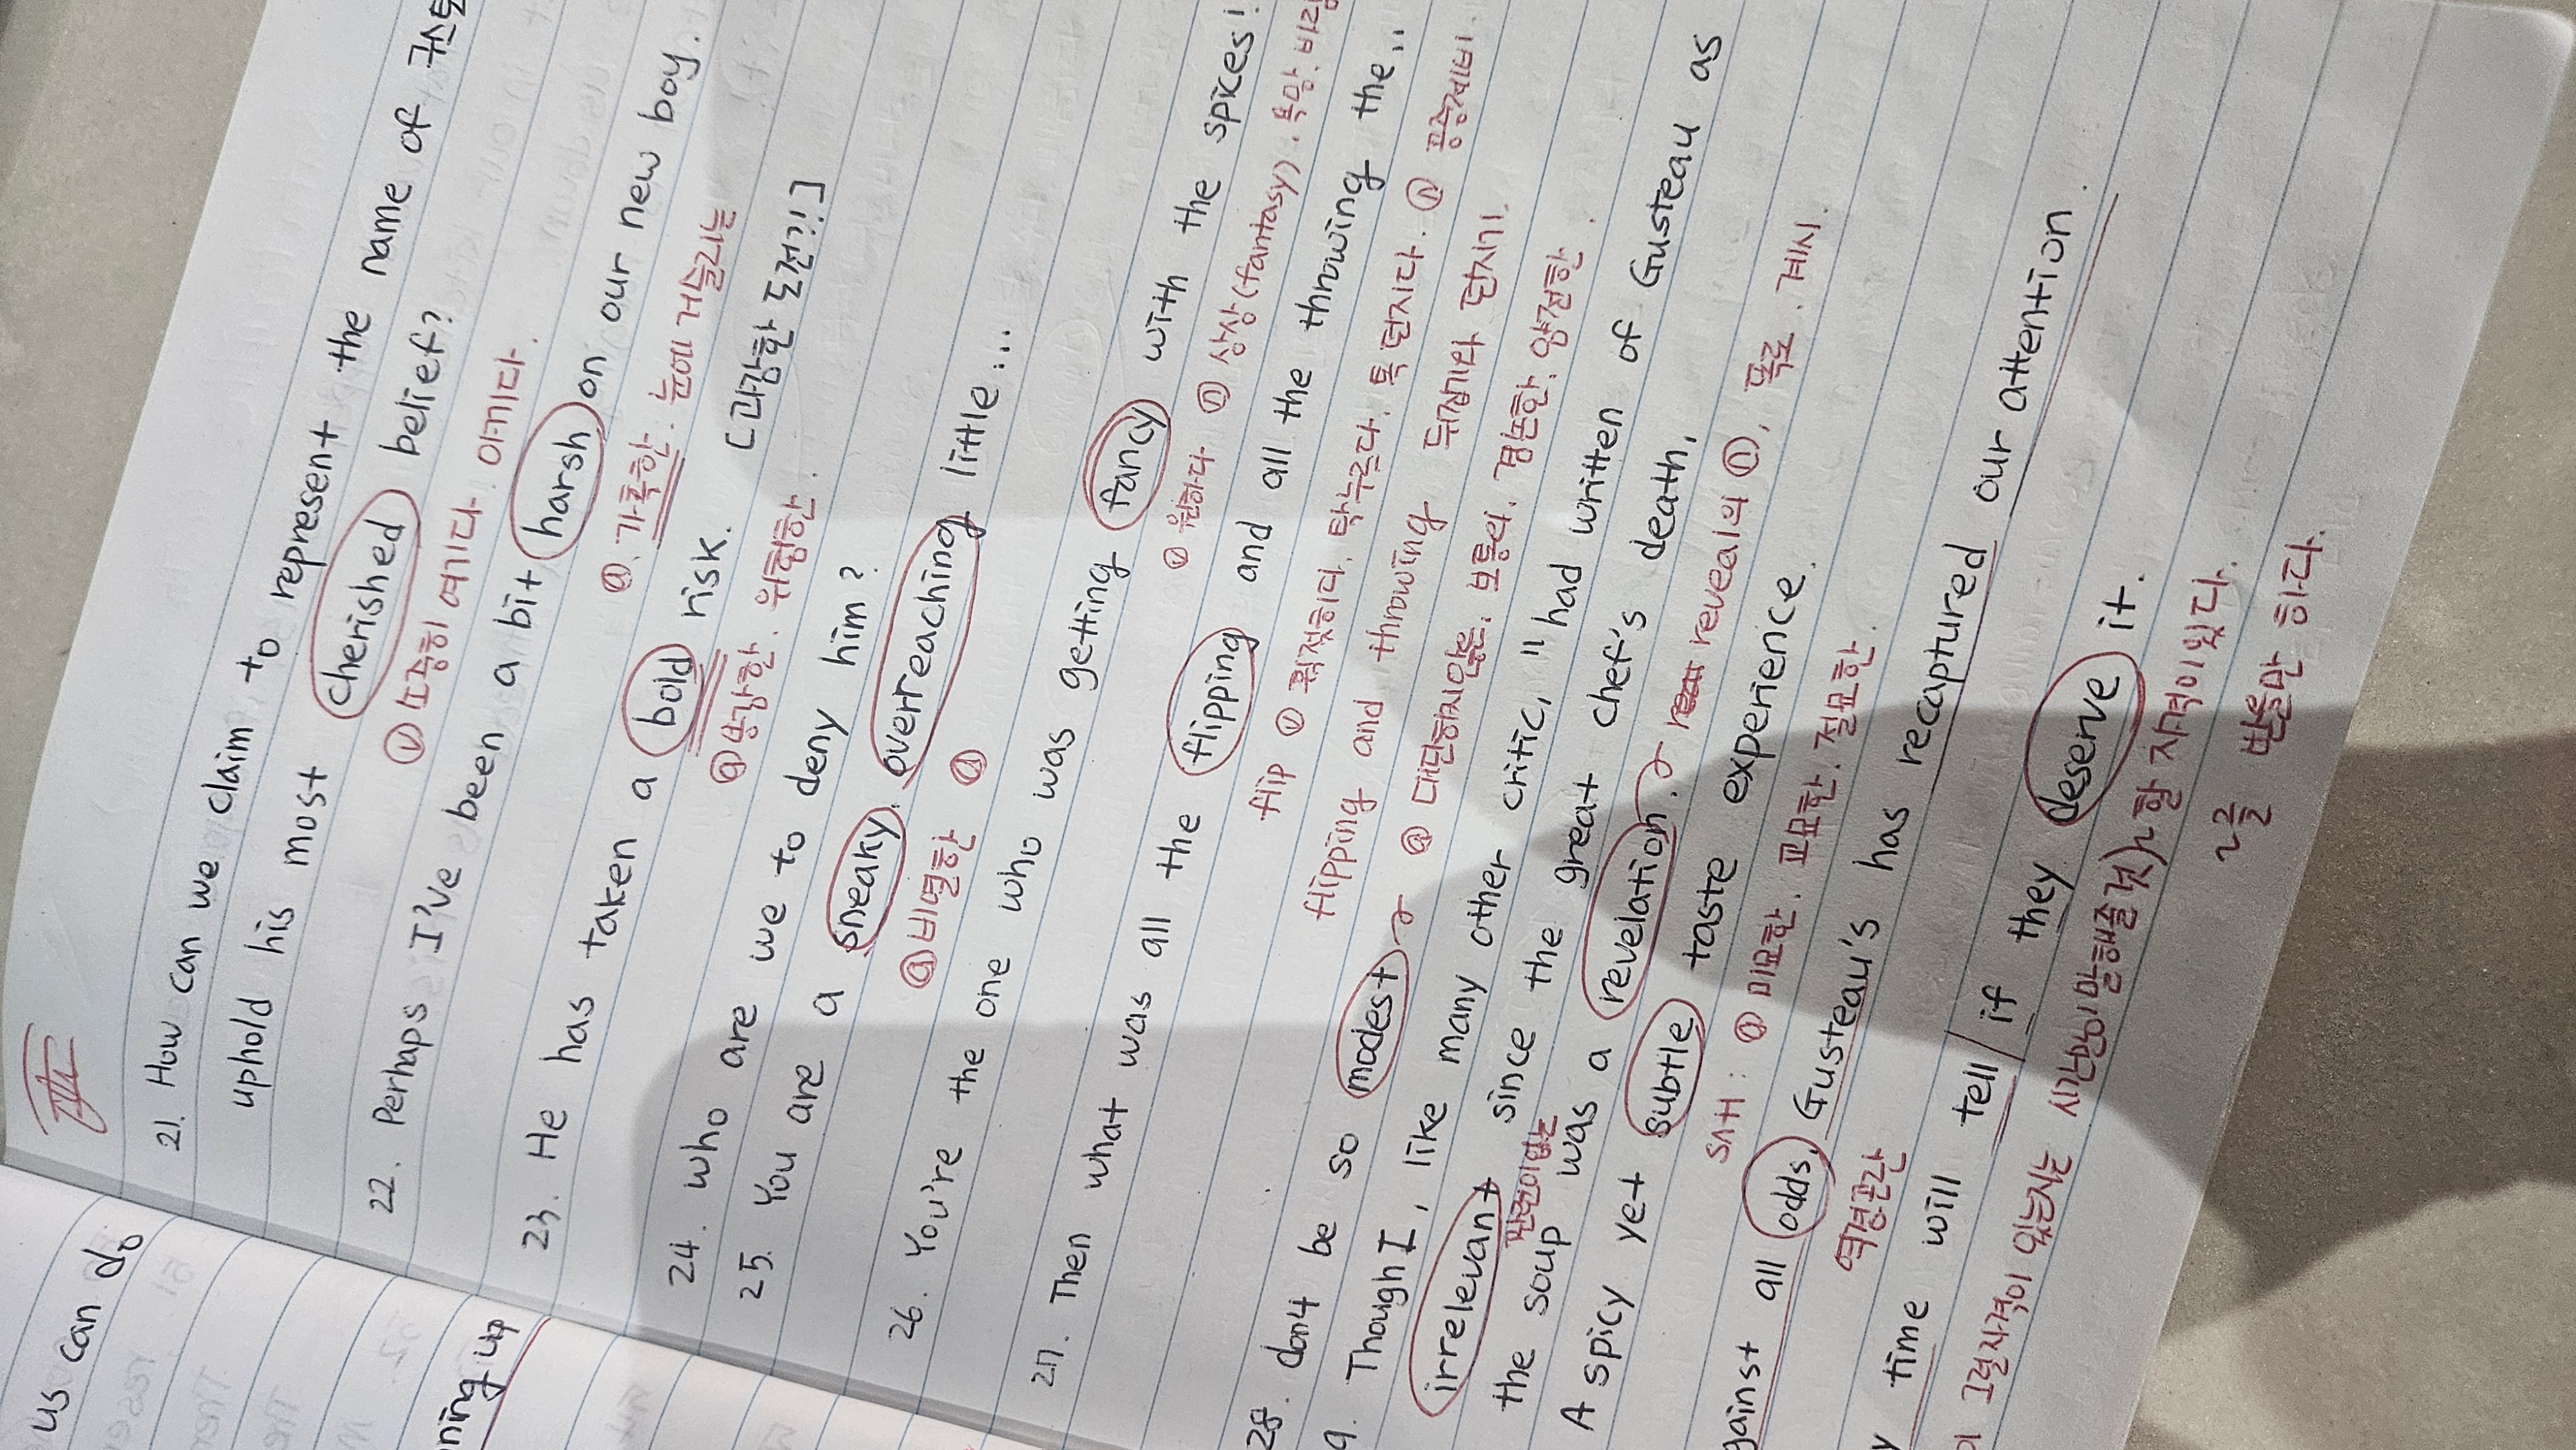 us can do
ning up
21. How can we claim to represent the name of 귀스토
uphold his most cherished belief?
ⓥ 소중히 여기다. 아끼다.
22. Perhaps I've been a bit harsh on our new boy.
ⓐ. 가혹한. 눈에 거슬리는
23. He has taken a bold risk. [과감한 도전?!]
ⓐ 용감한. 위험한.
24. who are we to deny him?
25. You are a sneaky. overreaching little...
ⓐ 비열한 ⓐ
26. You're the one who was getting fancy with the spices!
ⓥ 원하다 ⓝ 상상(fantasy). 욕망.
27. Then what was all the flipping and all the throwing the..
flip ⓥ 휙젖히다. 탁누르다. 톡 던지다. ⓝ 공중제비.
flipping and throwing 뒤집기와 던지기.
28. don4 be so modest ⓐ 대단하지않은. 보통의. 겸손한. 얌전한.
9. Though I, like many other critic, " had written of Gusteau as
irrelevant since the great chef's death,
관련이없는
the soup was a revelation. reveal의 ⓝ, 폭로. 계시.
A spicy yet subtle taste experience.
SAT : ⓐ 미묘한. 교묘한. 절묘한.
gainst all odds, Gusteau's has recaptured our attention.
역경곤란
y time will tell / if they deserve it.
그럴자격이 있는지는 시간만이 말해줄것) ~할 자격이있다.
~을 받을만 하다.